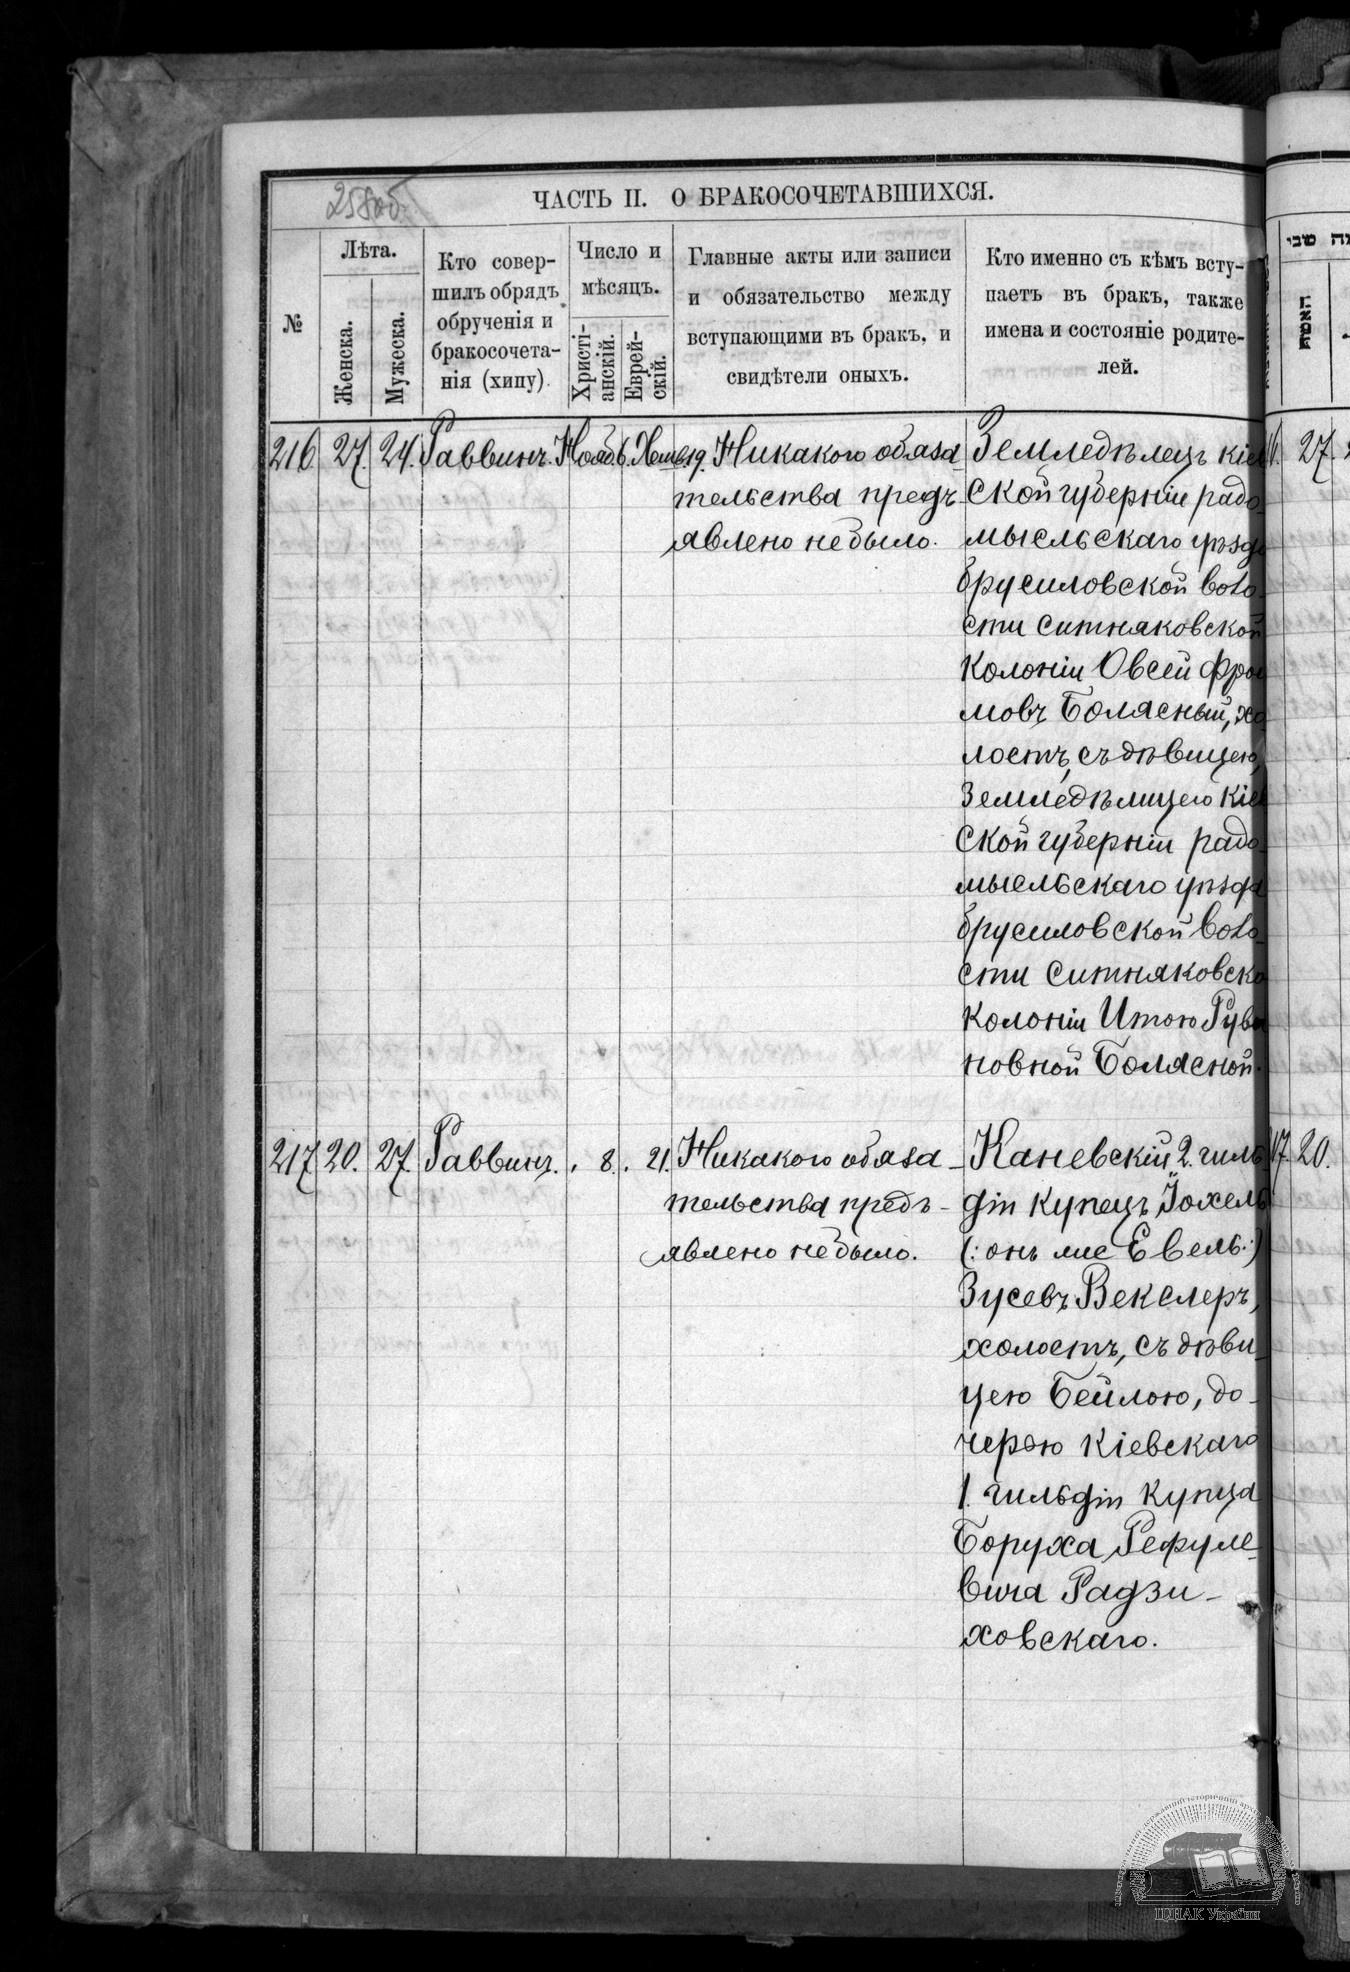 258об.
ЧАСТЬ II. О БРАКОСОЧЕТАВШИХСЯ.
№
Лѣта.
Женска.
Мужеска.
Кто совер-
шилъ обрядъ
обрученія и
бракосочета-
нія (хипу).
Число и
мѣсяцъ.
Христі-
анскій.
Еврей-
скій.
Главные акты или записи
и обязательство между
вступающими въ бракъ, и
свидѣтели оныхъ.
Кто именно съ кѣмъ всту-
паетъ въ бракъ, также
имена и состояніе родите-
лей.
216 27. 24. Раввинъ. 6. 19.
Никакого обяза-
тельства предъ-
явлено не было.
Земледѣлецъ кіев
ской губерніи радо-
мысльскаго уѣзда
брусиловской воло-
сти ситняковской
колоніи Овсей Фрои
мовъ Болясный, хо-
лостъ, съ дѣвицею,
Земледѣлицею кіев
ской губерніи радо-
мысльскаго уѣзда
брусиловской воло-
сти ситняковско
колоніи Итою Руви
новной Болясной.
217 20. 27. Раввинъ. 8. 21.
Никакого обяза-
тельства предъ-
явлено не было.
Каневскій 2. гиль
діи купецъ Іохель
(: онъ же Евель :)
Зусевъ Векслеръ,
холостъ, съ дѣви-
цею Бейлою, до-
черью кіевскаго
1. гильдіи купца
Боруха Рефуле-
вича Радзи-
ховскаго.
שבי
האשה
27.
17. 20.
ЦДІАК України